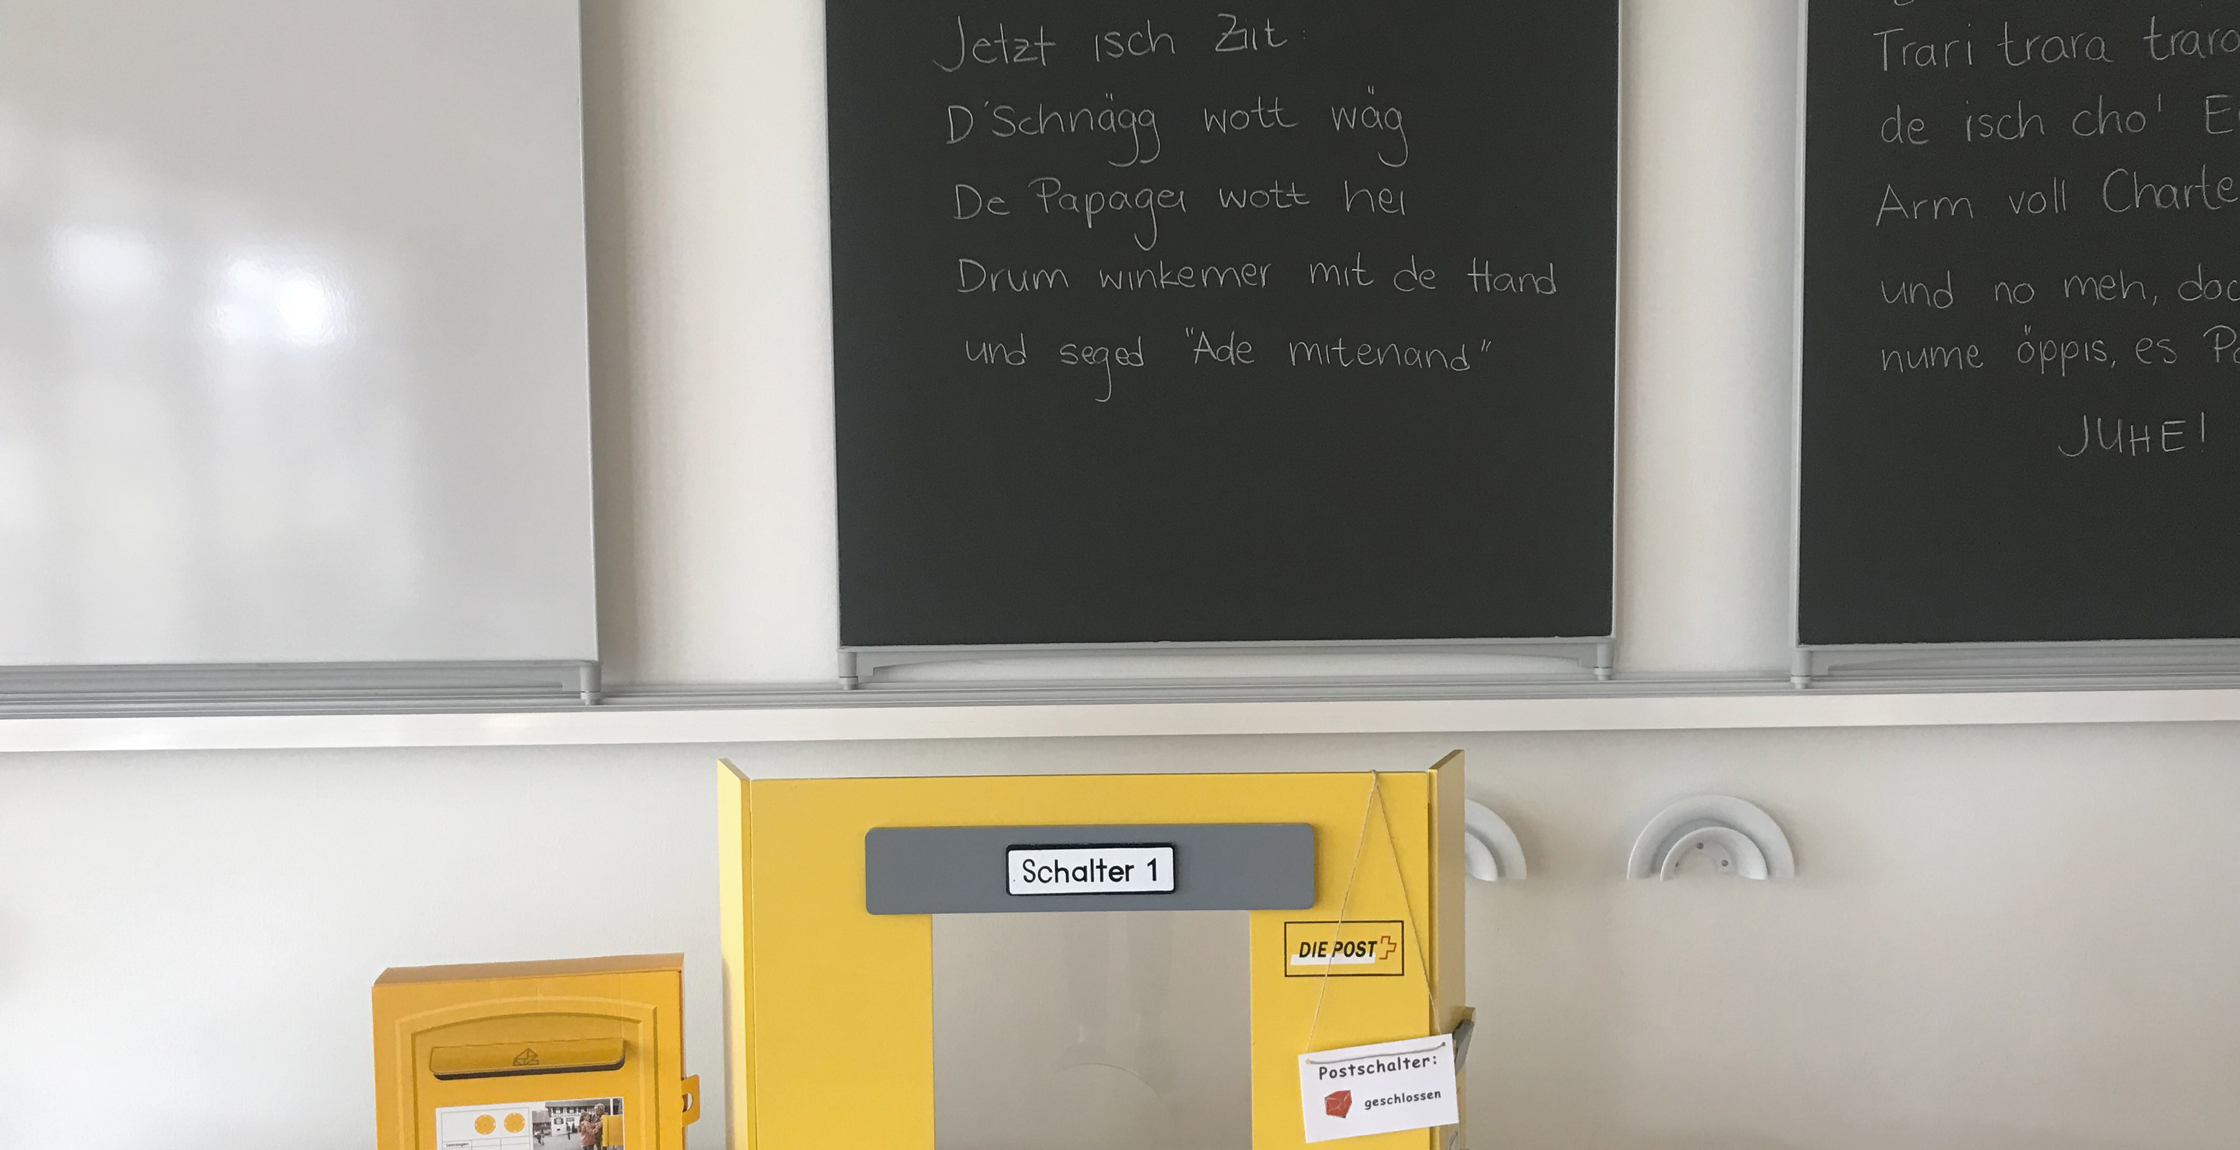 Jetzt isch Ziit:
D'Schnägg wott wäg
De Papagei wott hei
Drum winkemer mit de Hand
und seged "Ade mitenand"
Trari trara
de isch cho!
Arm voll Charte
und no meh,
nume öppis, es
JUHE!
Schalter 1
DIE POST
Postschalter:
geschlossen